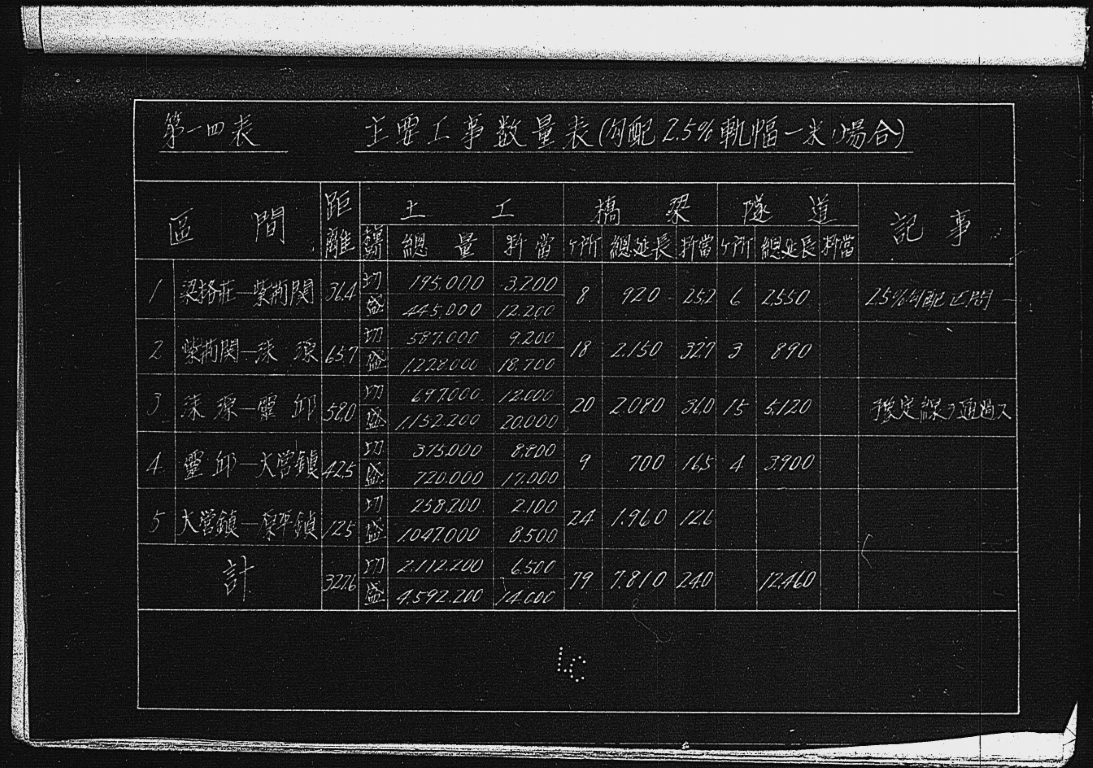 第一四表
主要工事数量表(勾配2.5%軌幅一米ノ場合)
區間 距離 土工 橋梁 隧道 記事
總量 粁當 ケ所 總延長 粁當 ケ所 總延長 粁當
1 梁格莊—紫荊関 36.4 切 195.000 3.200 8 920 25.2 6 2.550 2.5%勾配区間
盛 445.000 12.200
2 紫荊関—淶源 65.7 切 587.000 9.200 18 2.150 32.7 3 890
盛 1.228.000 18.700
3 淶源—靈邱 58.0 切 697.000 12.000 20 2.080 36.0 15 5.120 豫定線ヲ通過ス
盛 1.152.200 20.000
4 靈邱—大営鎮 42.5 切 375.000 8.800 9 700 16.5 4 3.900
盛 720.000 17.000
5 大営鎮—原平鎮 125 切 258.200 2.100 24 1.960 12.6
盛 1.047.000 8.500
計 327.6 切 2.112.200 6.500 79 7.810 24.0 12.460
盛 4.592.200 14.000